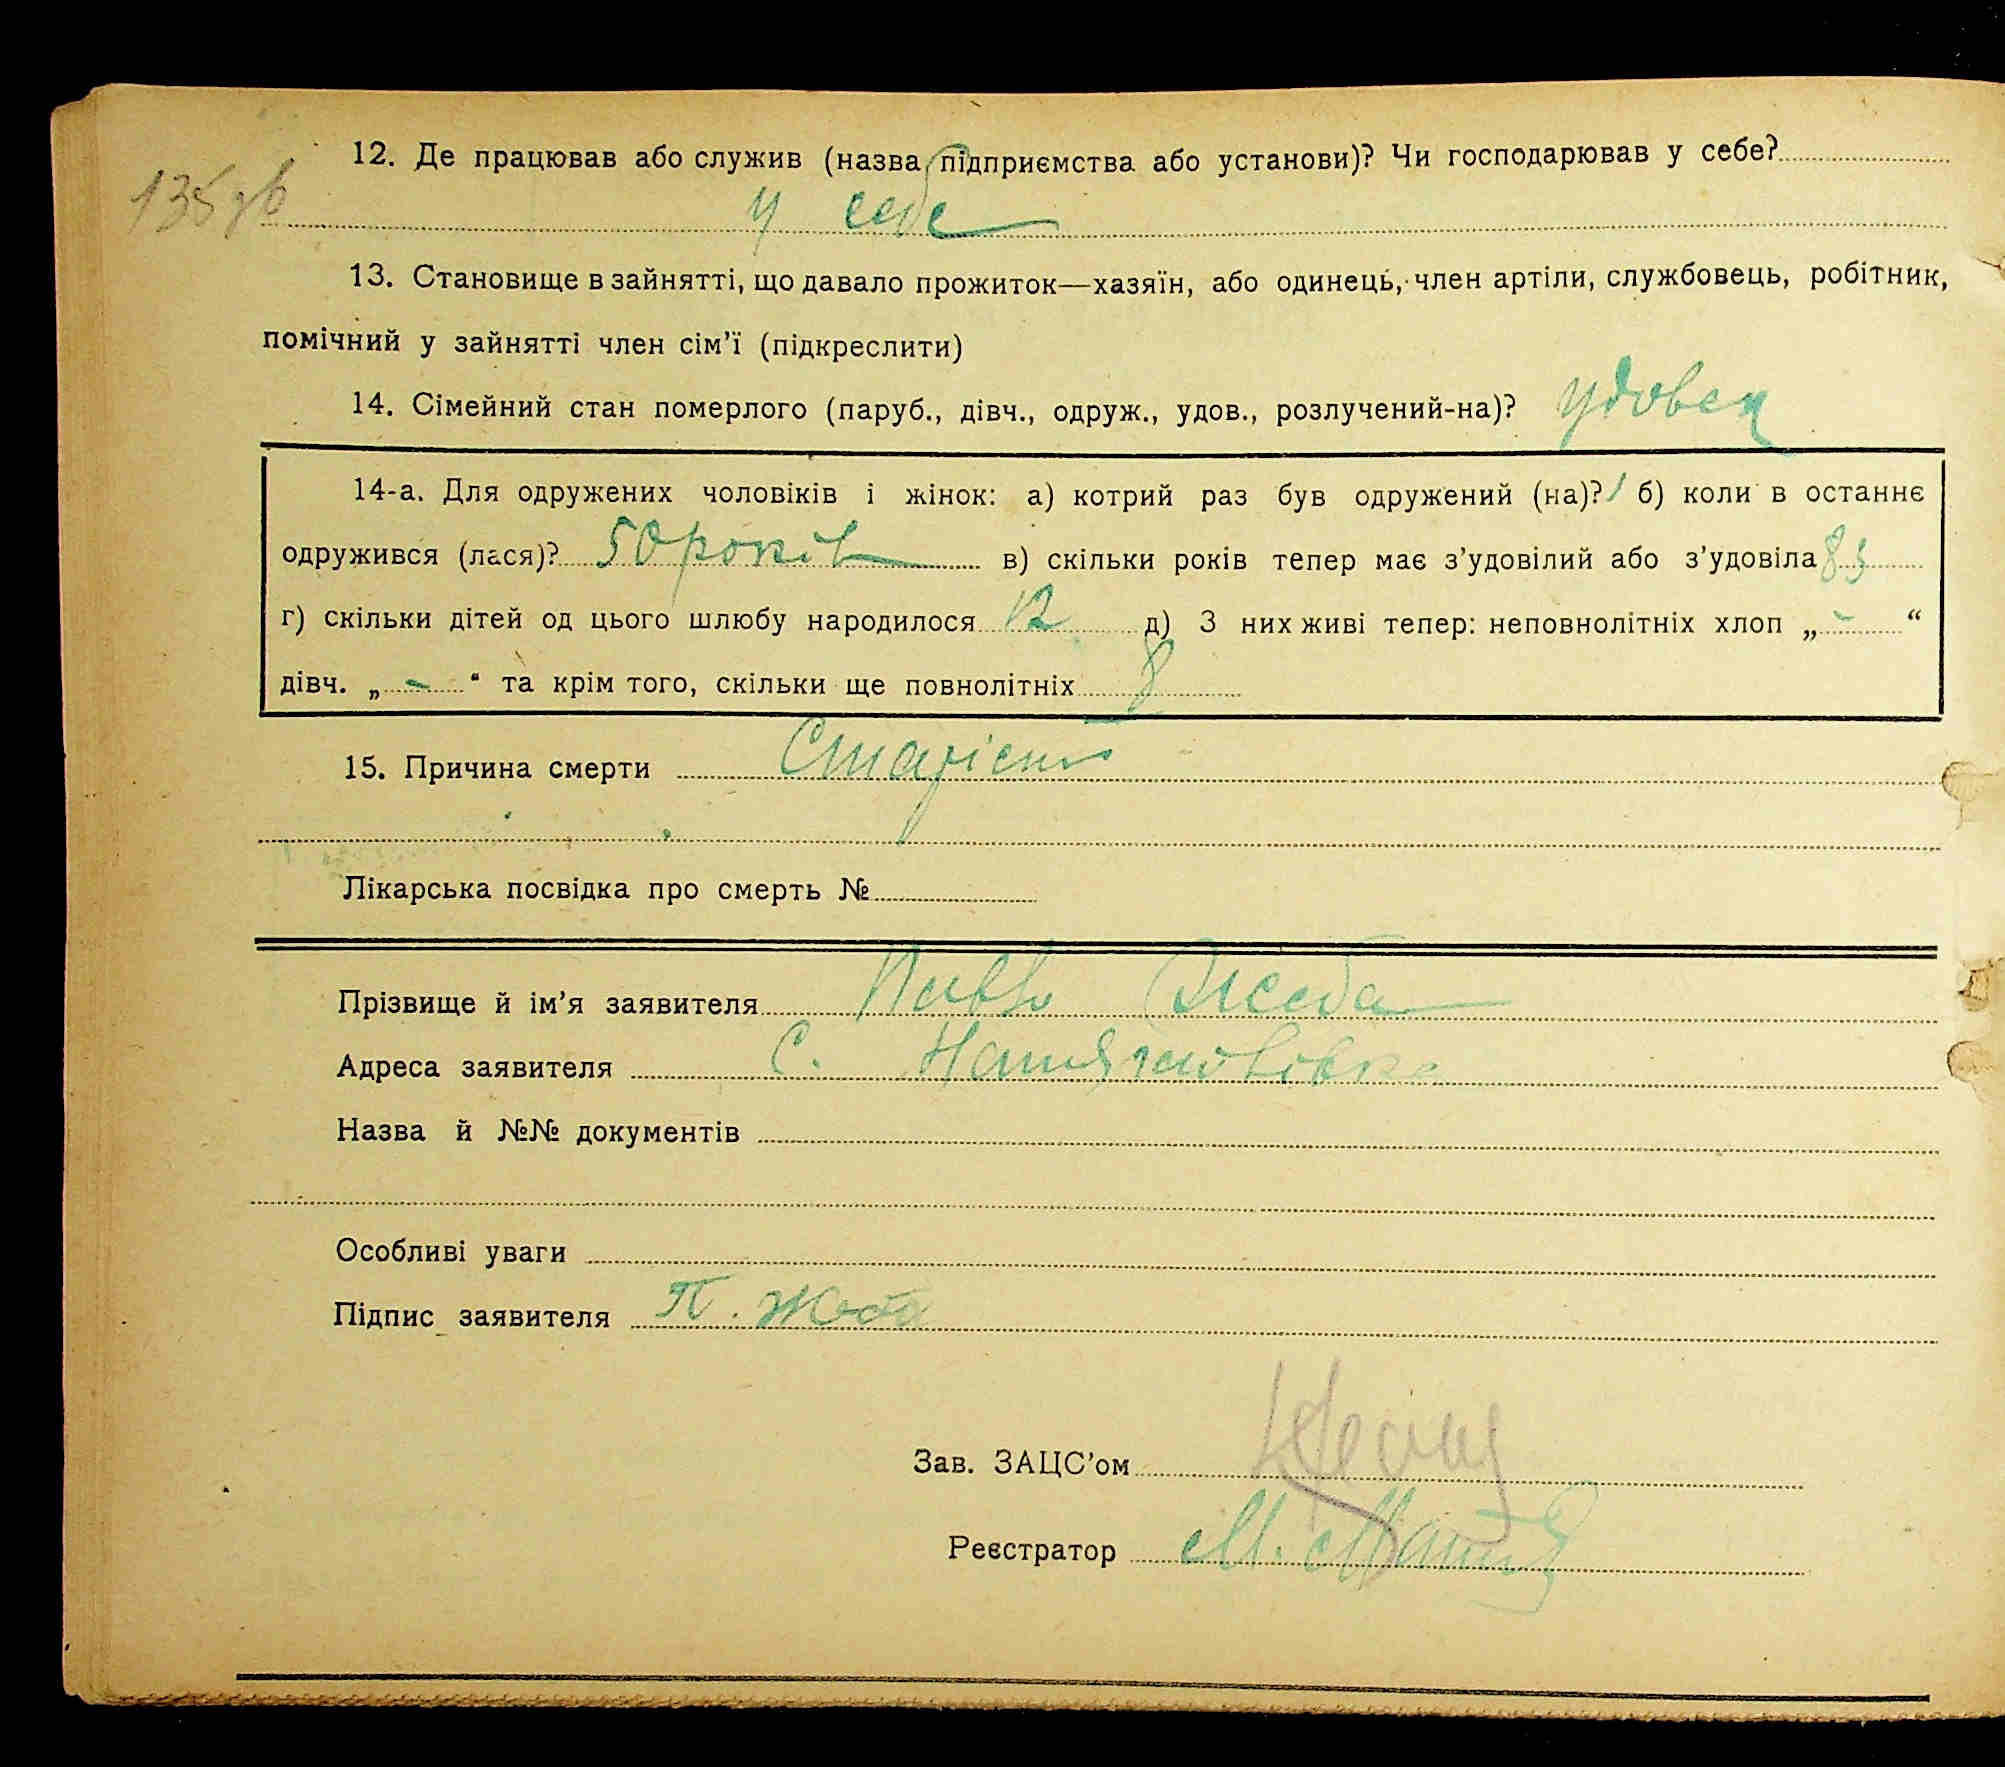 135 зв
12. Де працював або служив (назва підприємства або установи)? Чи господарював у себе?
у себе
13. Становище в зайнятті, що давало прожиток—хазяїн, або одинець, член артіли, службовець, робітник,
помічний у зайнятті член сім’ї (підкреслити)
14. Сімейний стан померлого (паруб., дівч., одруж., удов., розлучений-на)? удовец
14-а. Для одружених чоловіків і жінок: а) котрий раз був одружений (на)? 1 б) коли в останнє
одружився (лася)? 50 років в) скільки років тепер має з’удовілий або з’удовіла 83
г) скільки дітей од цього шлюбу народилося 12 д) З них живі тепер: неповнолітніх хлоп „ - “
дівч. „ - “ та крім того, скільки ще повнолітніх 8
15. Причина смерти Старість
Лікарська посвідка про смерть №
Прізвище й ім’я заявителя Павло
Адреса заявителя с.
Назва й №№ документів
Особливі уваги
Підпис заявителя П.
Зав. ЗАЦС’ом
Реєстратор М.